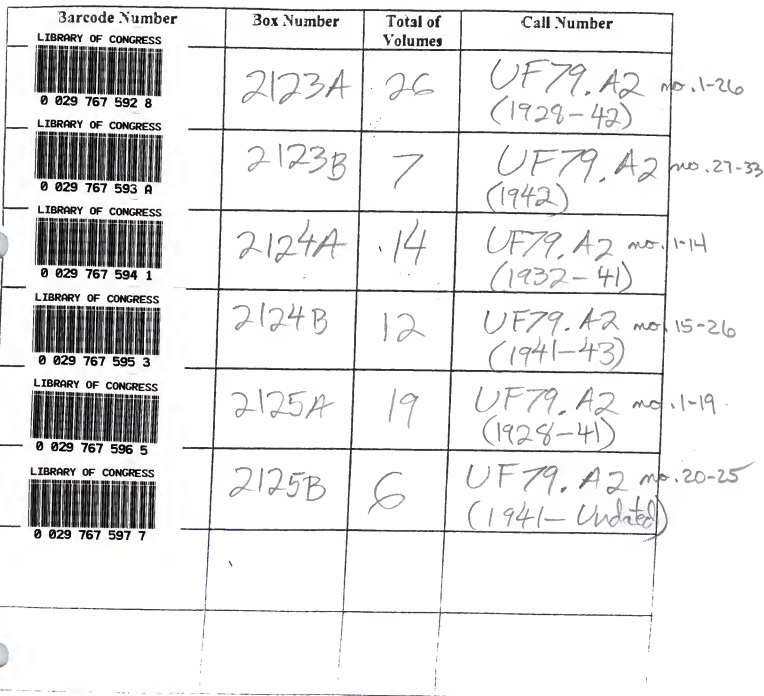 Barcode Number Box Number Total of Volumes Call Number
LIBRARY OF CONGRESS
0 029 767 592 8
2123A 26 UF79. A2 no. 1-26
(1928-42)
LIBRARY OF CONGRESS
0 029 767 593 A
2123B 7 UF79. A2 no. 27-33
(1942)
LIBRARY OF CONGRESS
0 029 767 594 1
2124A .14 UF79. A2 no. 1-14
(1932-41)
LIBRARY OF CONGRESS
0 029 767 595 3
2124B 12 UF79. A2 no. 15-26
(1941-43)
LIBRARY OF CONGRESS
0 029 767 596 5
2125A 19 UF79. A2 no. 1-19.
(1928-41)
LIBRARY OF CONGRESS
0 029 767 597 7
2125B 6 UF79. A2 no. 20-25
(1941- Undated)